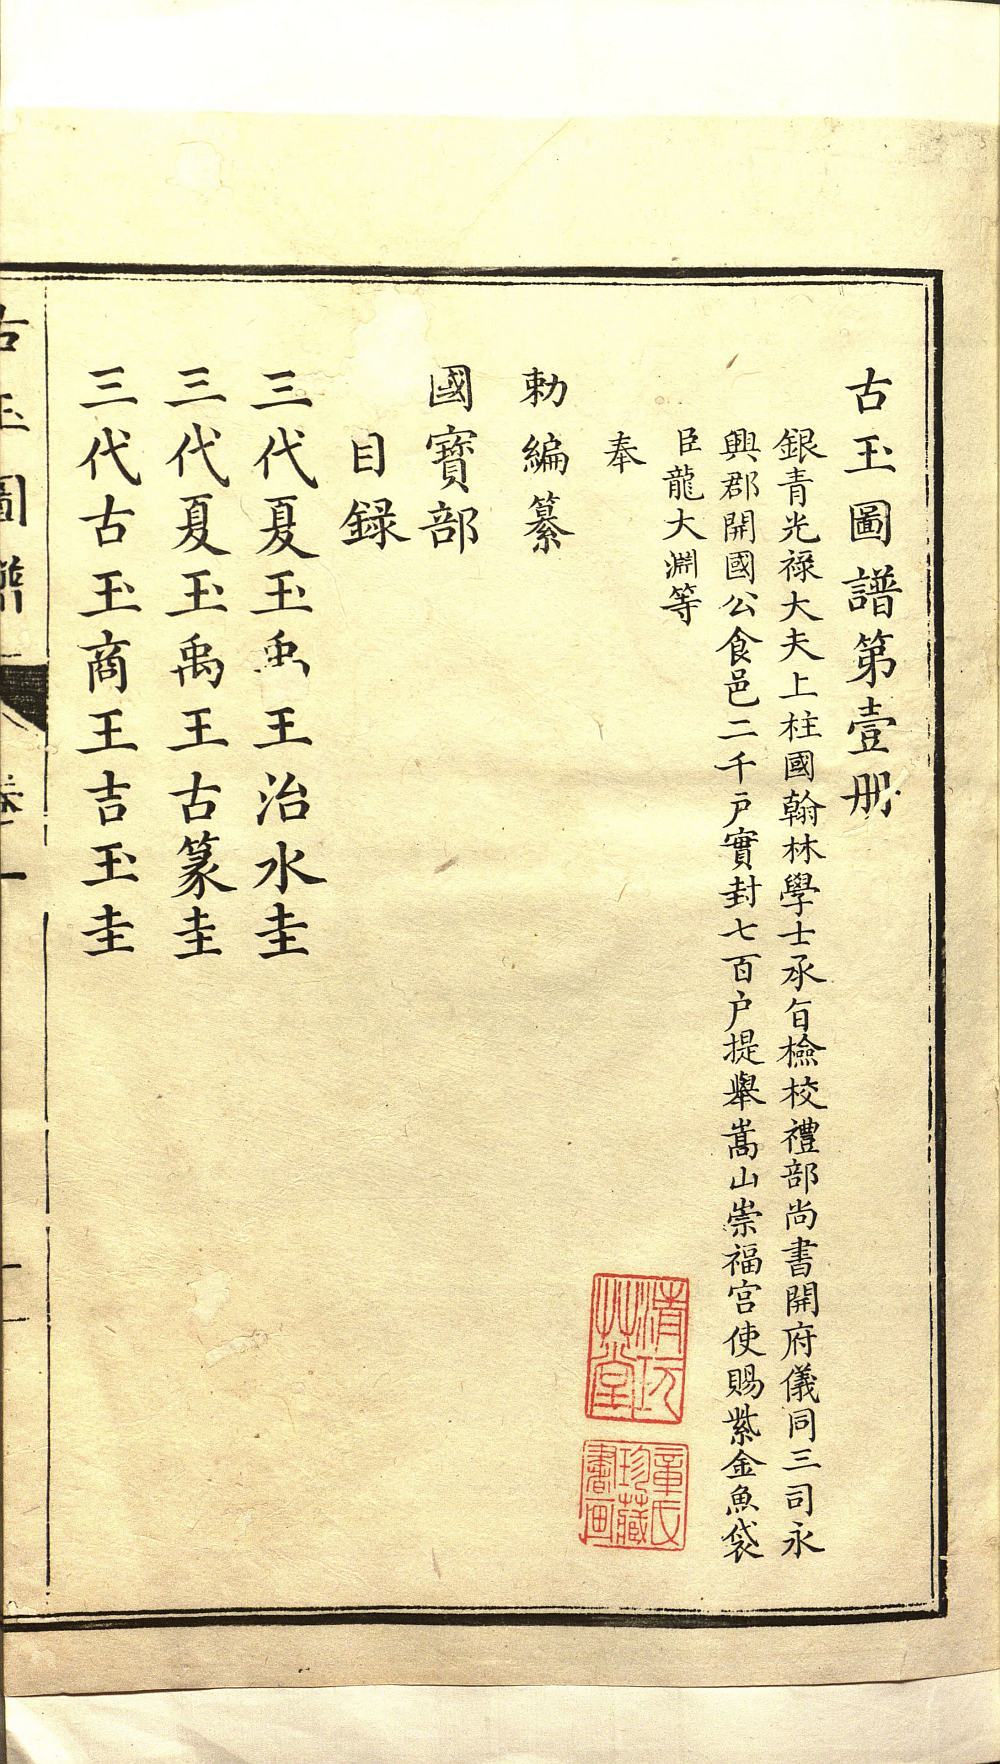 古玉圖譜第壹册
銀青光祿大夫上柱國翰林學士承旨檢校禮部尚書開府儀同三司永
興郡開國公食邑二千戶實封七百户提舉嵩山崇福宮使賜紫金魚袋
臣龍大淵等
奉
勅編纂
國寶部
目録
三代夏玉禹王治水圭
三代夏玉禹王古篆圭
三代古玉商王吉玉圭
清玩
艸堂
章氏
珍藏
書画
古玉圖譜
卷一